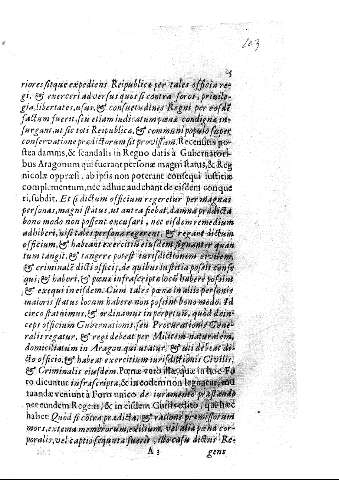 103
riores sitque expediens Reipublicæ per tales officia re-
gi, & exerceri adversus quos si contra foros, privile-
gia, libertates, usus, & consuetudines Regni per eosdē
factum fuerit, sin etiam indicatum pœna condigna in-
surgant, ut sic toti Republicæ, & communi populo super
conservatione prædictorum sit provisum. Recensitis po-
stea damnis, & scandalis in Regno datis à Gubernatori-
bus Aragonum qui fuerant personæ magni status, & Reg
nicolæ oppressi, ab ipsis non poterant consequi iustitiæ
complementum, nec adhuc audebant de eisdem conque
ri, subdit. Et si dictum officium regeretur per magnas
personas, magni status, ut antea fiebat, damna prædicta
bono modo non possent excusari, nec eisdem remedium
adhiberi, nisi tales personæ regerent, & regant dictum
officium, & habeant exercitiū eiusdem signanter quan
tum tangit, & tangere potest iurisdictionem civilem,
& criminalē dicti officij, de quibus iustitia possit conse
qui, & haberi, & pœna infrascripta locū habere possint
, & exequi in eisdem. Cum tales pœnæ in alijs personis
maioris status locum habere non possint bono modo. Id
circo statuimus, & ordinamus in perpetuū, quod dein-
ceps officium Gubernationis, seu Procurationis Gene-
ralis regatur, & regi debeat per Militem naturalem,
domiciliatum in Aragon qui utatur, & uti debeat di-
cto officio, & habeat exercitium iurisdictionis Civilis,
& Criminalis eiusdem. Pœnæ verò illæ, quæ in hoc Fo
ro dicuntur infrascripta, & in eodem non leguntur,
tuandæ veniunt à Foro unico de iuramento præstando
per eundem Regem, & in eisdem Cur. edito, quæ hæc
habet. Quod si cōtra prædicta, & rationes præmissorum
mors, extema membrorum, exilium, vel alia pœna cor-
poralis, vel captio sequuta fuerit, illo casu dictus Re-
A 3 gens